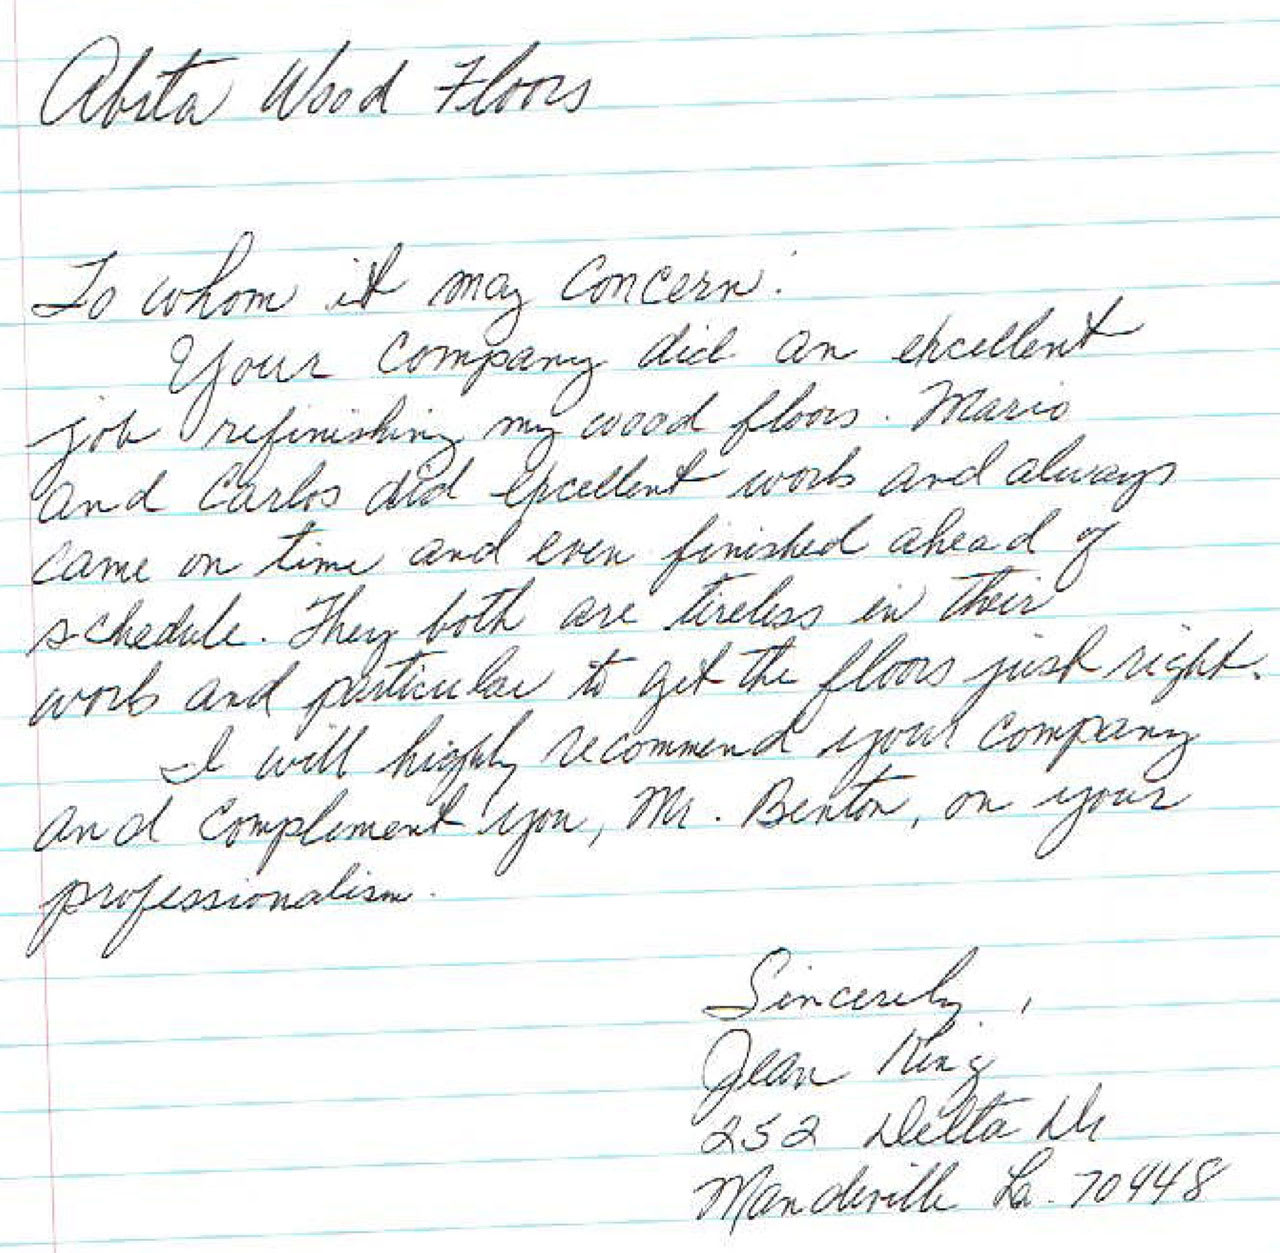 Abita Wood Floors
To whom it may concern:
Your company did an excellent
job refinishing my wood floors. Mario
and Carlos did excellent work and always
came on time and even finished ahead of
schedule. They both are tireless in their
work and particular to get the floors just right.
I will highly recommend your company
and complement you, Mr. Benton, on your
professionalism.
Sincerely,
Jean King
252 Delta Dr
Mandeville La. 70448